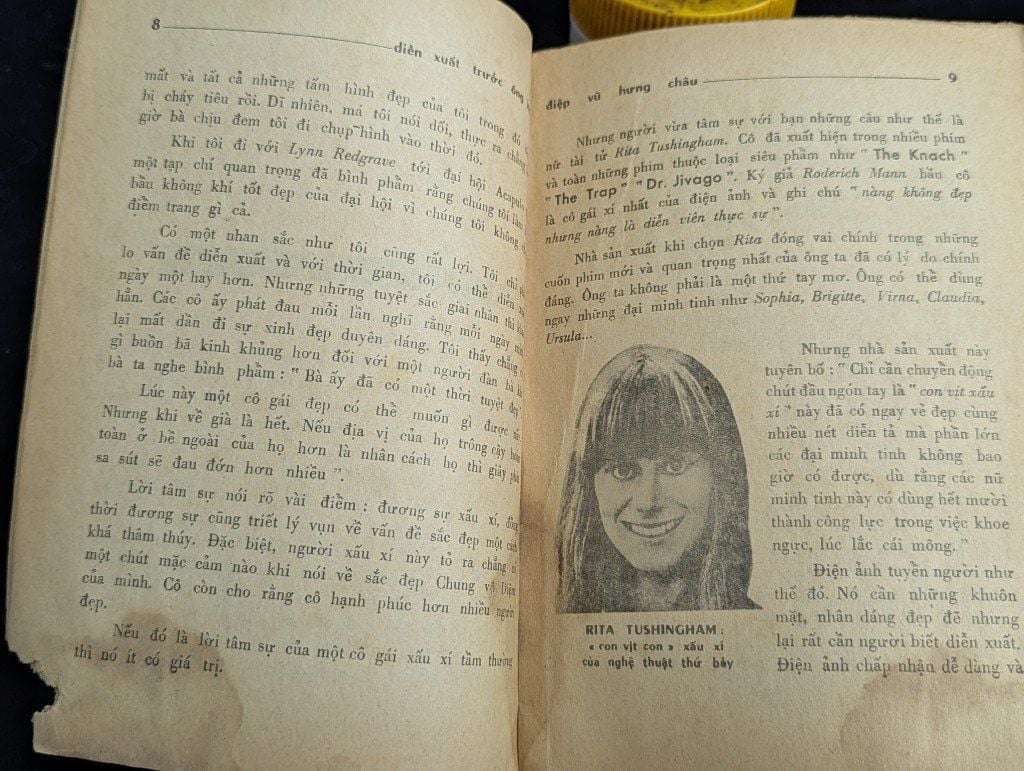 8
diễn xuất trước ống
mất và tất cả những tấm hình đẹp của tôi trong đó
bị cháy tiêu rồi. Dĩ nhiên, má tôi nói dối, thực ra chẳng
giờ bà chịu đem tôi đi chụp hình vào thời đó.
Khi tôi đi với Lynn Redgrave tới đại hội
một tạp chí quan trọng đã bình phẩm rằng chúng tôi làm
bầu không khí tốt đẹp của đại hội vì chúng tôi không
điểm trang gì cả.
Có một nhan sắc như tôi cũng rất lợi. Tôi chỉ
lo vấn đề diễn xuất và với thời gian, tôi có thể diễn
ngày một hay hơn. Nhưng những tuyệt sắc giai nhân thì
hẳn. Các cô ấy phát đau mỗi lần nghĩ rằng mỗi ngày
lại mất dần đi sự xinh đẹp duyên dáng. Tôi thấy chẳng
gì buồn bã kinh khủng hơn đối với một người đàn bà
bà ta nghe bình phẩm : “ Bà ấy đã có một thời tuyệt đẹp
Lúc này một cô gái đẹp có thể muốn gì được
Nhưng khi về già là hết. Nếu địa vị của họ trông cậy
toàn ở bề ngoài của họ hơn là nhân cách họ thì giây phút
sa sút sẽ đau đớn hơn nhiều ”.
Lời tâm sự nói rõ vài điểm : đương sự xấu xí, đồng
thời đương sự cũng triết lý vụn về vấn đề sắc đẹp một cách
khá thâm thúy. Đặc biệt, người xấu xí này tỏ ra chẳng
một chút mặc cảm nào khi nói về sắc đẹp Chung vô Diệm
của mình. Cô còn cho rằng cô hạnh phúc hơn nhiều người
đẹp.
Nếu đó là lời tâm sự của một cô gái xấu xí tầm thường
thì nó ít có giá trị.
điệp vũ hưng châu
9
Nhưng người vừa tâm sự với bạn những câu như thế là
nữ tài tử Rita Tushingham. Cô đã xuất hiện trong nhiều phim
và toàn những phim thuộc loại siêu phẩm như “ The Knach ”
“ The Trap ” “ Dr. Jivago ”. Ký giả Roderich Mann bầu cô
là cô gái xí nhất của điện ảnh và ghi chú “ nàng không đẹp
nhưng nàng là diễn viên thực sự ”.
Nhà sản xuất khi chọn Rita đóng vai chính trong những
cuốn phim mới và quan trọng nhất của ông ta đã có lý do chính
đáng. Ông ta không phải là một thứ tay mơ. Ông có thể dùng
ngay những đại minh tinh như Sophia, Brigitte, Virna, Claudia,
Ursula...
Nhưng nhà sản xuất này
tuyên bố : “ Chỉ cần chuyển động
chút đầu ngón tay là “ con vịt xấu
xí ” này đã có ngay vẻ đẹp cùng
nhiều nét diễn tả mà phần lớn
các đại minh tinh không bao
giờ có được, dù rằng các nữ
minh tinh này có dùng hết mười
thành công lực trong việc khoe
ngực, lúc lắc cái mông. ”
Điện ảnh tuyển người như
thế đó. Nó cần những khuôn
mặt, nhân dáng đẹp đẽ nhưng
lại rất cần người biết diễn xuất.
Điện ảnh chấp nhận dễ dàng và
RITA TUSHINGHAM :
« con vịt con » xấu xí
của nghệ thuật thứ bảy